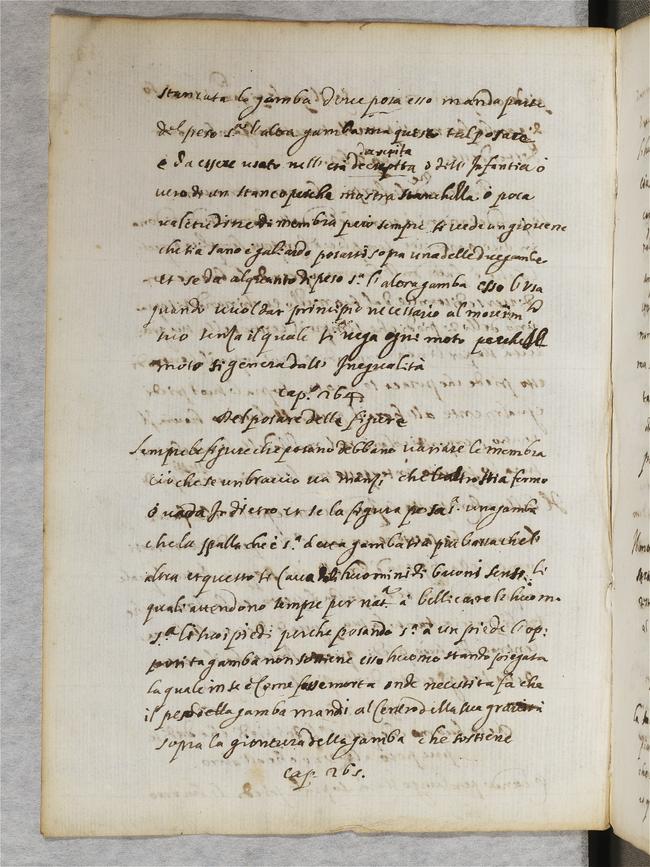 stancata la gamba dove posa esso manda parte
del peso s.ª l'altra gamba ma questo tal posare
è da essere usato nell'età decrepita o dell'Infantia ó
decrepita
vero di un stanco perche mostra stanchezza ó poca
valetudine di membra pero sempre si vede un giovene
che sia sano e galiardo posarsi sopra una delle due gambe
et se da alquanto di peso s.ª l'altra gamba esso l'usa
quando vuol dar principio necessario al movim.to
suo senza il quale si nega ogni moto perche il
moto si genera dalla Inequalità
cap.º 264
Del posare delle figure
Sempre le figure che posano debbano variare le membra
cioè che se un braccio va inanzi che l'altro stia fermo
ó vada Indietro et se la figura posa s.ª una gamba
che la spalla che è s.ª d'essa gamba sia piu bassa che l'
altra et questo si cava dali huomini di buoni sensi li
quali attendono sempre per nat.ª à bellicare l'huomo
s.ª li suoi piedi perche posando s.ª à un piede l'op-
posita gamba non sostiene esso huomo stando piegata
la quale in se è come fosse morta onde necessità fà che
il peso della gamba mandi al Centro della sua gravità
sopra la giontura della gamba che sostiene
cap. 265.